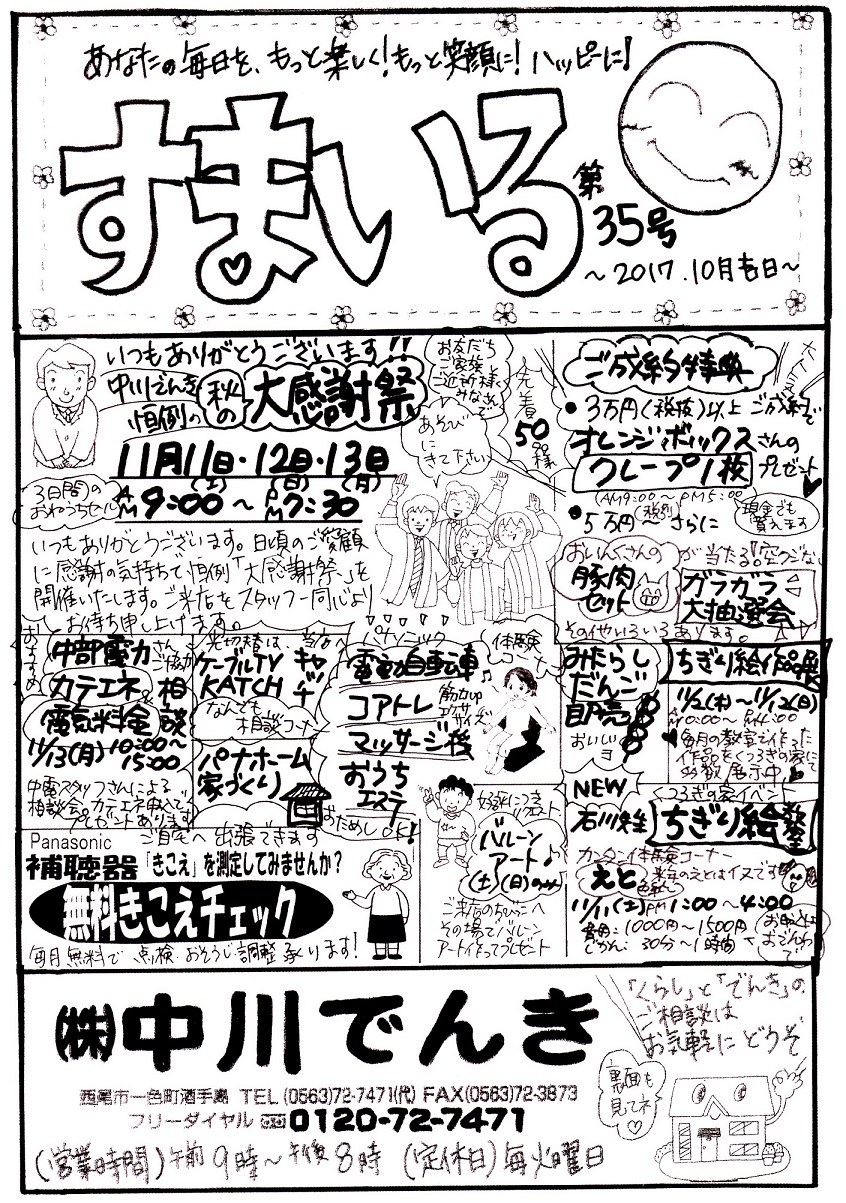 あなたの毎日を、もっと楽しく!もっと笑顔に!ハッピーに!
すまいる
第
35号
〜2017.10月吉日〜
いつもありがとうございます!!
中川でんき
恒例の
秋の
大感謝祭
11月11日・12日・13日
(土)(日)(月)
3日間の
おねうちセール
AM9:00〜PM7:30
お友だち
ご家族
ご近所様
みなさんで
あそび
にきて下さい
先着
50名様
いつもありがとうございます。日頃のご愛顧
に感謝の気持ちで恒例「大感謝祭」を
開催いたします。ご来店をスタッフ一同心より
お待ち申し上げます。
ご成約特典
●3万円(税抜)以上ご成約で
オレンジボックスさんの
クレープ1枚プレゼント
(AM9:00〜PM5:00
現金でも
買えます
●5万円(税別)さらに
おいんくさんの
豚肉
セット
が当たる!空クジなし
ガラガラ
大抽選会
その他いろいろあります。
おすすめ
中部電力さん
ご協力
カテエネ&
電気料金
相談
11/13(月)10:00〜
15:00
中電スタッフさんによる
相談会。カテエネ申込で
プレゼントあります
光切替は、当店へ
ケーブルTV
KATCH
キャッチ
なんでも
相談コーナー
パナホーム
家づくり
パナソニック
電動自転車
コアトレ
筋力up
エクササイズ
マッサージ機
おうち
エステ
おためしOK!
体験
コーナー
みたらし
だんご
即売
おいしいヨ
ちぎり絵作品展
11/2(木)〜11/12(日)
AM10:00〜PM4:00
毎月の教室で作った
作品をくつろぎの家にて
多数展示中
NEW
石川先生
くつろぎの家イベント
ちぎり絵教室
カンタン体験コーナー
えと
色紙
来年のえとはイヌです
11/11(土)PM1:00〜4:00
費用:1000円〜1500円
じかん:30分〜1時間
おでんわで
好評につき
バルーン
アート♪
(土)(日)のみ
ご来店のちびっこへ
その場でバルーン
アート作ってプレゼント
Panasonic
ご自宅へ出張できます
補聴器「きこえ」を測定してみませんか?
無料きこえチェック
毎月無料で点検・おそうじ・調整承ります!
㈱中川でんき
西尾市一色町酒手島 TEL(0563)72-7471(代) FAX(0563)72-3873
フリーダイヤル 0120-72-7471
(営業時間)午前9時〜午後8時 (定休日)毎火曜日
「くらし」と「でんき」の
ご相談は
お気軽にどうぞ
裏面も
見てネ